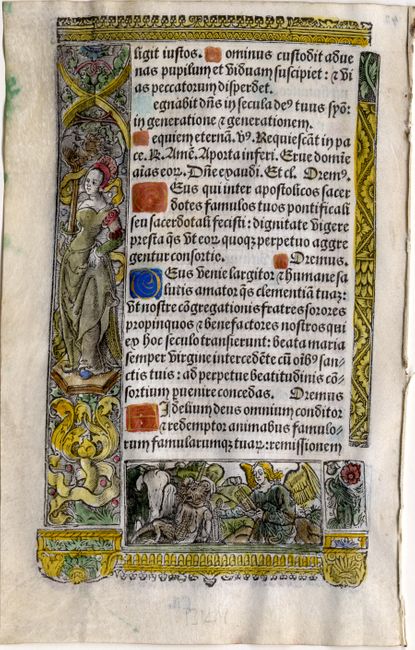 ligit iustos. D ominus custodit adue
nas pupilum et viduam suscipiet: ⁊ vi
as peccatorum disperdet.
egnabit dñs in secula deꝰ tuus syõ:
in generatione ⁊ generationem.
equiem eternã. ℣. Requiescãt in pa
ce. ℟. Amẽ. A porta inferi. Erue domĩe
aĩas eoꝝ. Dñe exaudi. Et cl. Oremꝰ.
Eus qui inter apostolicos sacer
dotes famulos tuos pontificali
seu sacerdotali fecisti: dignitate vigere
presta q̃s vt eoꝝ quoqꝫ perpetuo aggre
gentur consortio. Oremus.
Eus venie largitor ⁊ humane sa
lutis amator q̃s clementiã tuaꝫ:
vt nostre cõgregationis fratres sorores
propinquos ⁊ benefactores nostros qui
ex hoc seculo transierunt: beata maria
semper virgine intercedẽte cũ oĩbꝰ san-
ctis tuis: ad perpetue beatitudinis cõ-
sortium puenire concedas. Oremus
Idelium deus omnium conditor
⁊ redemptor animabus famulo-
rum famularumqꝫ tuaꝝ: remissionem